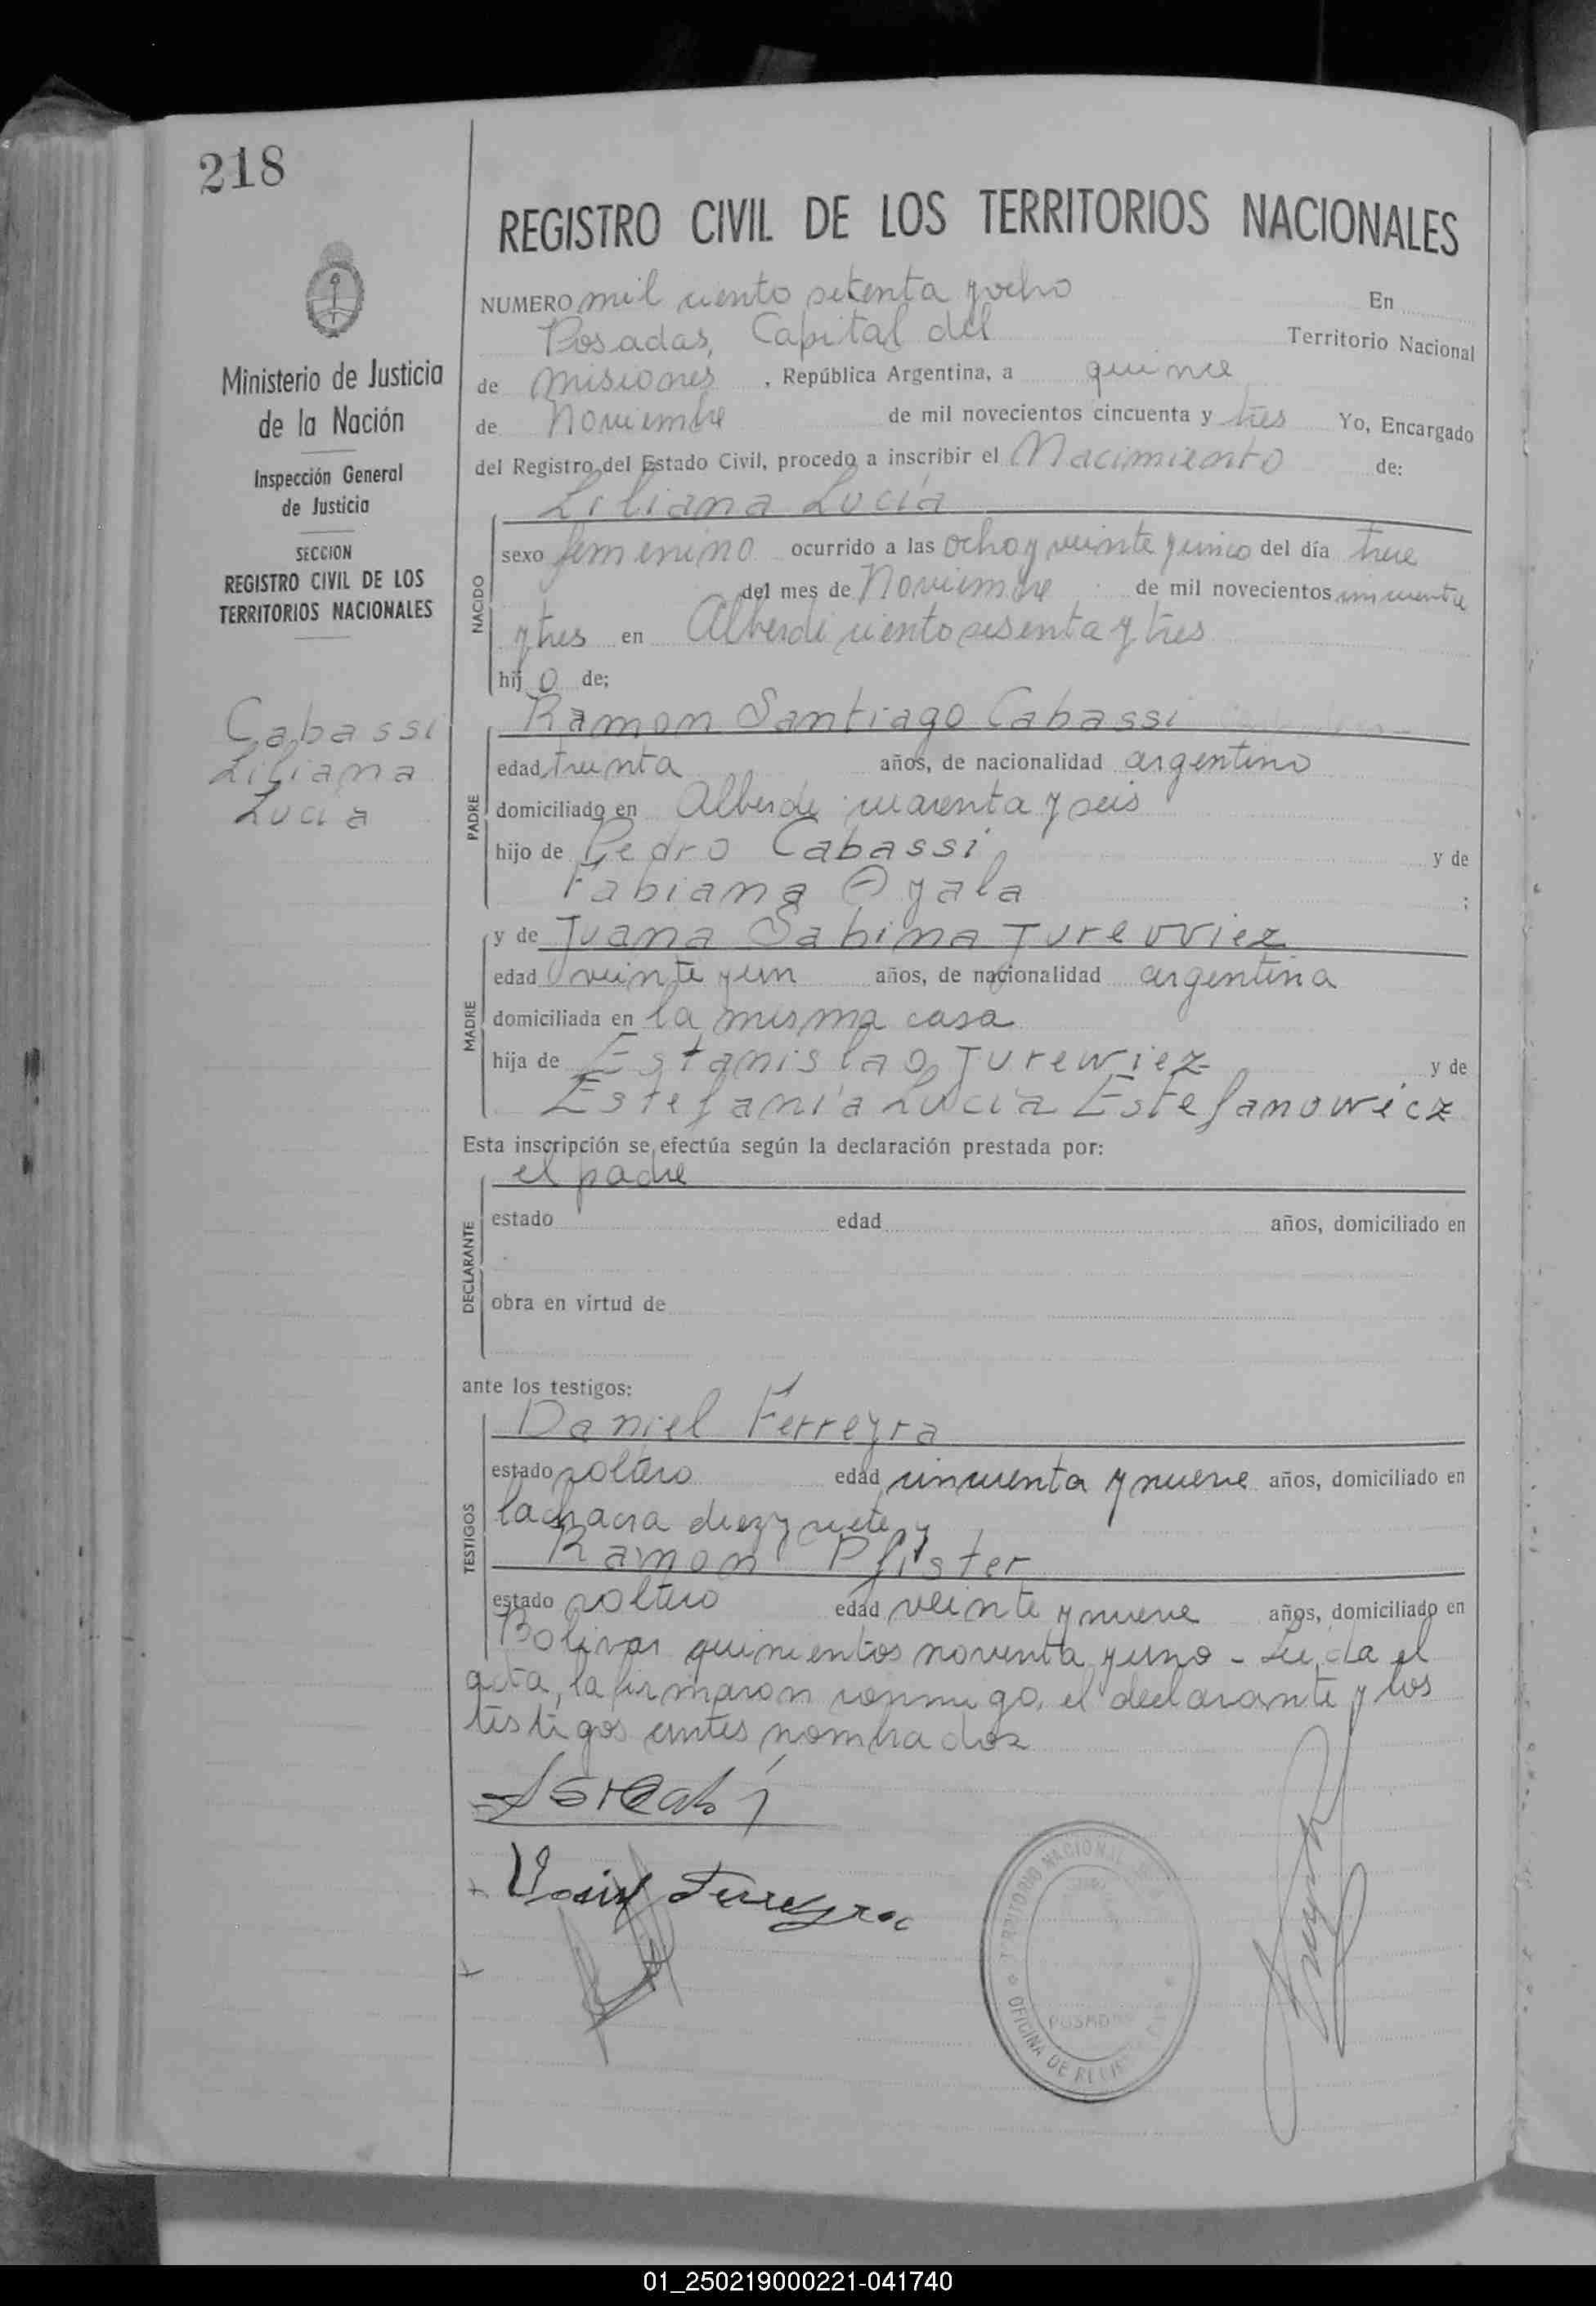 218
REGISTRO CIVIL DE LOS TERRITORIOS NACIONALES
Ministerio de Justicia
de la Nación
Inspección General
de Justicia
SECCION
REGISTRO CIVIL DE LOS
TERRITORIOS NACIONALES
Cabassi
Liliana
Lucia
NUMERO mil ciento setenta y ocho En
Posadas, Capital del Territorio Nacional
de Misiones, República Argentina, a quince
de Noviembre de mil novecientos cincuenta y tres Yo, Encargado
del Registro del Estado Civil, procedo a inscribir el Nacimiento de:
Liliana Lucía
NACIDO
sexo femenino ocurrido a las ocho y veinte y cinco del día trece
del mes de Noviembre de mil novecientos cincuenta
y tres en Alberdi ciento sesenta y tres
hij o de;
Ramon Santiago Cabassi
PADRE
edad treinta años, de nacionalidad argentino
domiciliado en Alberdi cuarenta y seis
hijo de Pedro Cabassi y de
Fabiana Ayala ;
MADRE
y de Juana Sabina Jurewiez
edad veinte y un años, de nacionalidad argentina
domiciliada en la misma casa
hija de Estanislao Jurewiez y de
Estefanía Lucía Estefanowicz
Esta inscripción se efectúa según la declaración prestada por:
el padre
DECLARANTE
estado edad años, domiciliado en
obra en virtud de
ante los testigos:
Daniel Ferreyra
TESTIGOS
estado soltero edad cincuenta y nueve años, domiciliado en
la chacra diez y siete, y
Ramon Pfister
estado soltero edad veinte y nueve años, domiciliado en
Bolivar quinientos noventa y uno - Leida el
acta, la firmaron conmigo, el declarante y los
testigos antes nombrados
Ferreyra
TERRITORIO NACIONAL
POSADAS
OFICINA DE
01_250219000221-041740